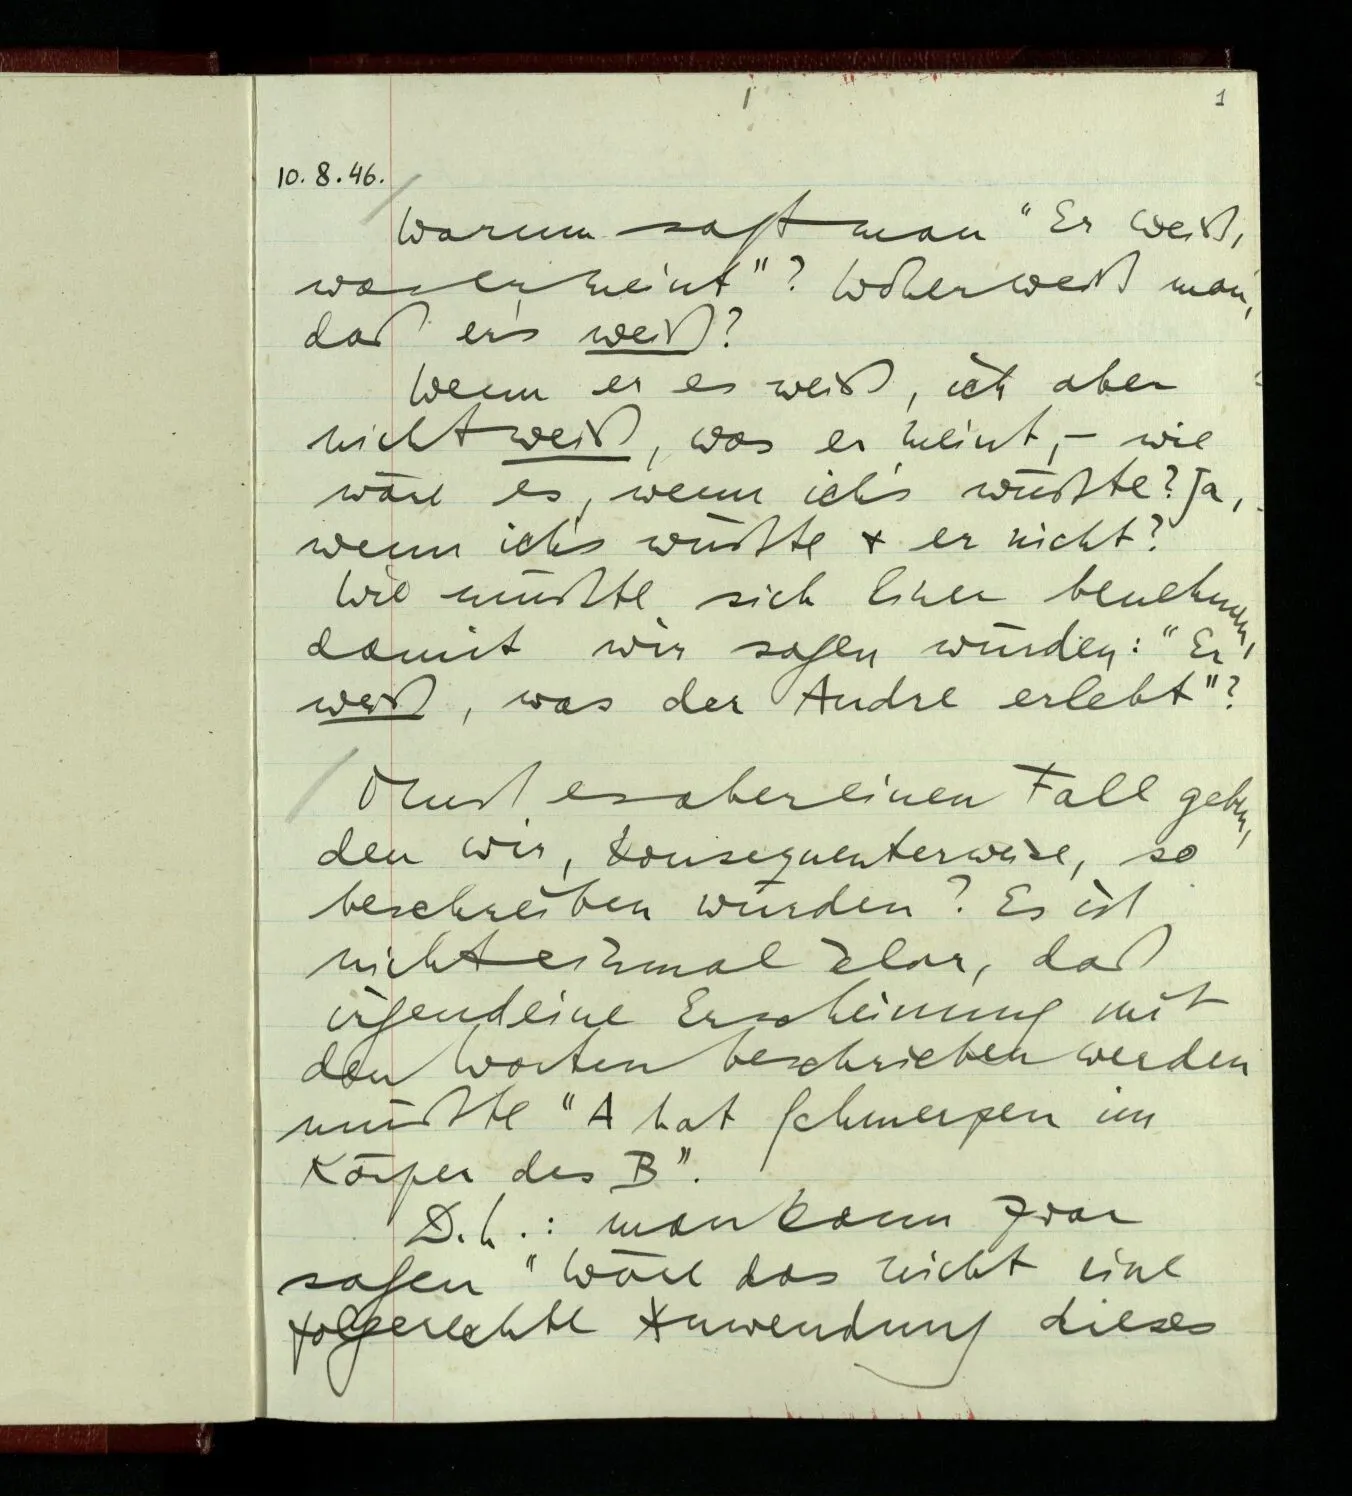 1
10.8.46.
Warum sagt man “Er weiß,
was er meint”? Woher weiß man,
daß er's weiß?
Wenn er es weiß, ich aber
nicht weiß, was er meint, – wie
wäre es, wenn ich's wüßte? Ja,
wenn ich's wüßte & er nicht?
Wie müßte sich Einer benehmen,
damit wir sagen würden: “Er
weiß, was der Andre erlebt”?
Muß es aber einen Fall geben,
den wir, konsequenterweise, so
beschreiben würden? Es ist
nicht einmal klar, daß
irgendeine Erscheinung mit
den Worten beschrieben werden
müßte “A hat Schmerzen im
Körper des B”.
D.h.: man kann zwar
sagen “Wäre das nicht eine
folgerechte Anwendung dieses